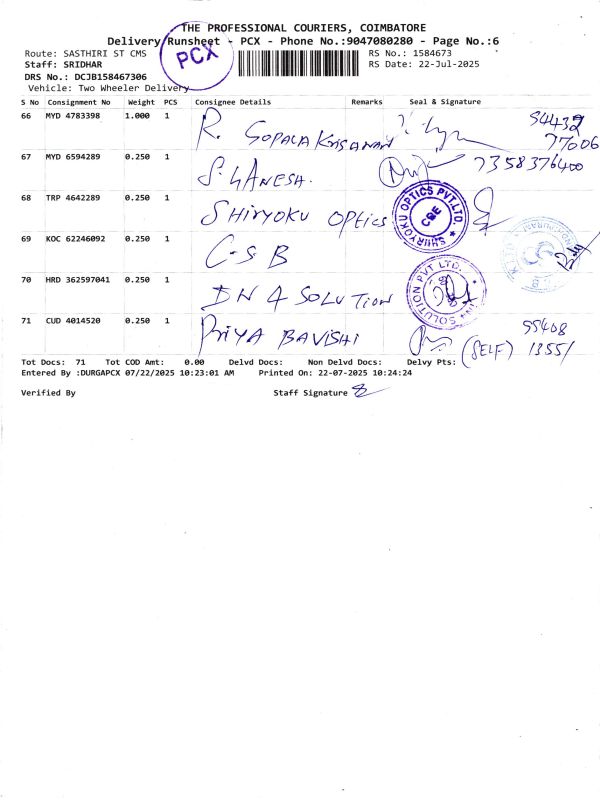 THE PROFESSIONAL COURIERS, COIMBATORE
Delivery Runsheet - PCX - Phone No.:9047080280 - Page No.:6
PCX
Route: SASTHIRI ST CMS
RS No.: 1584673
Staff: SRIDHAR
RS Date: 22-Jul-2025
DRS No.: DCJB158467306
Vehicle: Two Wheeler Delivery
S No Consignment No Weight PCS Consignee Details Remarks Seal & Signature
66 MYD 4783398 1.000 1 R. GOPALA KRISHNAN 94432
77006
67 MYD 6594289 0.250 1 S. GANESH. 7358376400
68 TRP 4642289 0.250 1 SHIRYOKU OPTICS
SHIRYOKU OPTICS PVT.LTD. ★ CBE ★
69 KOC 62246092 0.250 1 C-S B
70 HRD 362597041 0.250 1 IN 4 SOLUTION
SOLUTION PVT LTD.
71 CUD 4014520 0.250 1 PRIYA BAVISHI (SELF) 99408
13551
Tot Docs: 71 Tot COD Amt: 0.00 Delvd Docs: Non Delvd Docs: Delvy Pts:
Entered By :DURGAPCX 07/22/2025 10:23:01 AM Printed On: 22-07-2025 10:24:24
Verified By Staff Signature